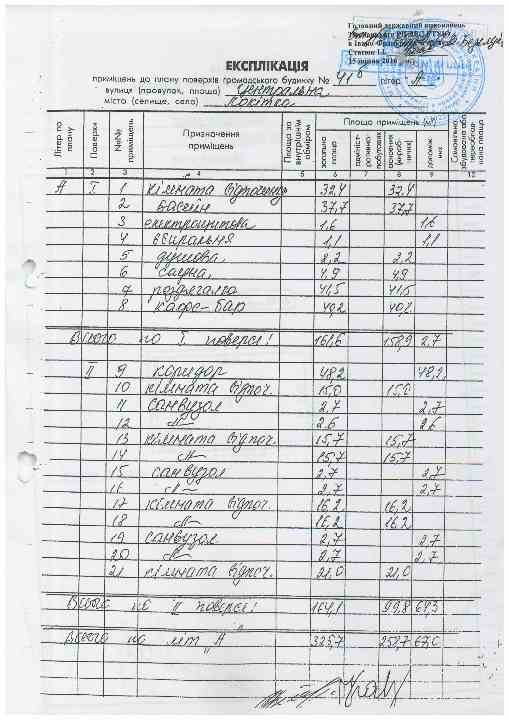 Головний державний виконавець
15 липня
ЕКСПЛІКАЦІЯ
приміщень до плану поверхів громадського будинку № 41б літер А
вулиця (провулок, площа) Центральна
місто (селище, село)
Літер по плану Поверхи №№ приміщень Призначення приміщень Площа за внутрішнім обміром Площа приміщень (м²)
загальна площа основна допоміж них
1 2 3 4 5 6 7 8 9 10
А I 1 кімната відпочинку 32,4 32,4
2 басейн 37,7 37,7
3 електрощитова 1,6 1,6
4 1,1 1,1
5 душова 2,2 2,2
6 сауна 4,9 4,9
7 роздягалка 41,5 41,5
8 кафе-бар 40,2 40,2
Всього по I поверсі: 161,6 158,9 2,7
II 9 коридор 48,2 48,2
10 кімната відпоч. 15,0 15,0
11 санвузол 2,7 2,7
12 -"- 2,6 2,6
13 кімната відпоч. 15,7 15,7
14 -"- 15,7 15,7
15 санвузол 2,7 2,7
16 -"- 2,7 2,7
17 кімната відпоч. 16,2 16,2
18 -"- 16,2 16,2
19 санвузол 2,7 2,7
20 -"- 2,7 2,7
21 кімната відпоч. 21,0 21,0
Всього по II поверсі: 164,1 99,8 64,3
Всього по літ "А" 325,7 258,7 67,0